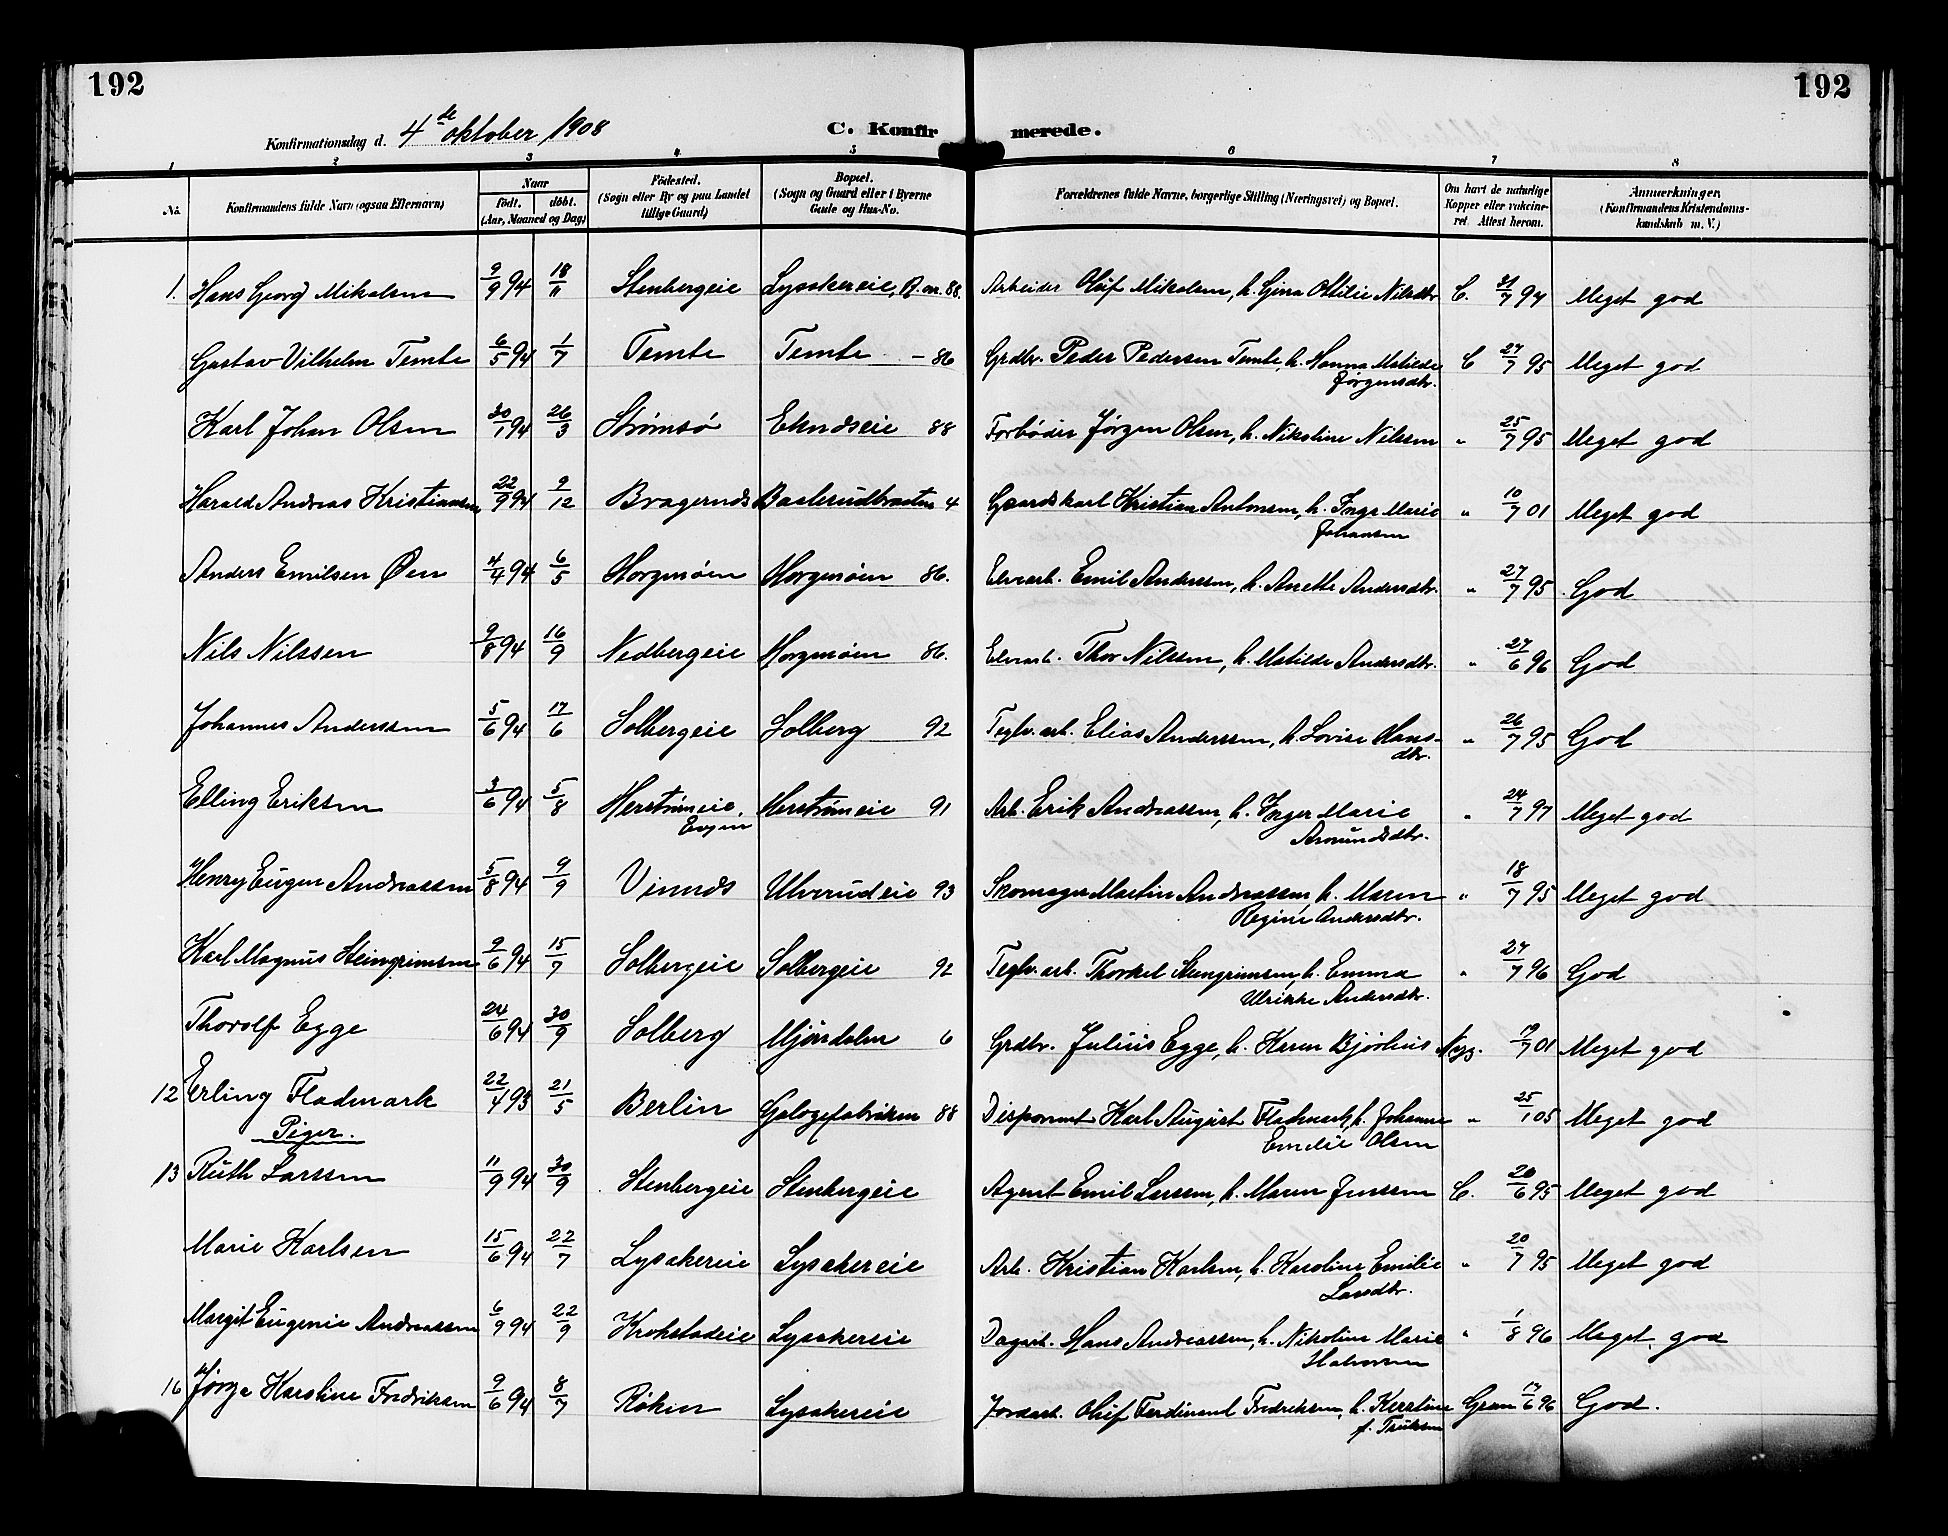 192
192
Konfirmationsdag d. 4de oktober 1908
C. Konfirmerede.
1 2 3 4 5 6 7 8
No. Konfirmandens fulde Navn (ogsaa Efternavn) Naar født. døbt. (Aar, Maaned og Dag) Fødested. (Sogn eller By og paa Landet tillige Gaard) Bopæl. (Sogn og Gaard eller i Byerne Gade og Hus-No. Forældrenes fulde Navne, borgerlige Stilling (Næringsvei) og Bopæl. Om havt de naturlige Kopper eller vakcineret. Attest herom. Anmærkninger, (Konfirmandens Kristendomskundskab m. V.)
1. Hans Georg Mikalsen 9/9 94 18/11 Stenbergeie Lysakereie, B. nr. 88. Arbeider Oluf Mikalsen, h. Gina Otilie Nilsdtr C. 21/7 97 Meget god
Gustav Vilhelm Temte 6/5 94 1/7 Temte Temte — 86 Grdbr. Peder Pedersen Temte, h. Hanna Matilde C 27/7 95 Meget god
Jørgensdtr.
Karl Johan Olsen 30/1 94 26/3 Strømsø Ekndseie 88 Forbøder Jørgen Olsen, h. Nikoline Nilssen " 25/7 95 Meget god
Harald Andreas Kristiansen 22/9 94 9/12 Bragernds Baaserudbraaten 4 Gaardskarl Kristian Antonsen, h. Inga Marie " 10/7 01 Meget god
Johansen
Anders Emilsen Øen 4/4 94 6/5 Horgenøen Horgenøen 86. Elvearb. Emil Anderssen, h. Anette Andersdtr. " 27/7 95 God
Nils Nilssen 9/8 94 16/9 Nedbergeie Horgenøen 86. Elvearb. Thor Nilssen, h. Matilde Andersdtr. " 27/6 96 God
Johannes Anderssen 5/6 94 17/6 Solbergeie Solberg 92 Teglv.arb. Elias Anderssen, h. Lovise Hans- " 26/7 95 God
dtr.
Elling Eriksen 3/6 94 5/8 Herstrømeie, Herstrømeie 91 Arb. Erik Andreassen, h. Inger Marie " 24/7 97 Meget god
Amundsdtr.
Henry Eugen Andreassen 5/8 94 9/9 Vinnds Ulverudeie 93 Skomager Martin Andreassen, h. Maren " 18/7 95 Meget god
Regine Andersdtr.
Karl Magnus Steingrimsen 9/6 94 15/7 Solbergeie Solbergeie 92 Teglv.arb. Thorkel Steingrimsen, h. Emma " 27/7 96 God
Ulrikke Andersdtr.
Thorolf Egge 24/6 94 30/9 Solberg Mjøndalen 6 Grdbr. Julius Egge, h. Karen Bjørhus 19/7 01 Meget god
12 Erling Fladmark 22/4 93 21/5 Berlin Galogefabriken 88 Disponent Karl August Fladmark, h. Johanne " 25/1 05 Meget god
Emelie Olsen
Piger.
13 Ruth Larssen 11/9 94 30/9 Stenbergeie Stenbergeie Agent Emil Larssen, h. Maren Jenssen C. 20/6 95 Meget god
Marie Karlsen 15/6 94 22/7 Lysakereie Lysakereie Arb. Kristian Karlsen, h. Karoline Emilie " 20/7 95 Meget god
Larsdtr.
Margit Eugenie Andreassen 6/9 94 22/9 Krokstadeie Lysakereie Dagarb. Hans Andreassen, h. Nikoline Marie " 1/8 96 Meget god
Halvorsen
16 Jørga Karoline Fredriksen 9/6 94 8/7 Røken Lysakereie Jordarb. Oluf Ferdinand Fredriksen, h. Kerstine 17/6 96 God.